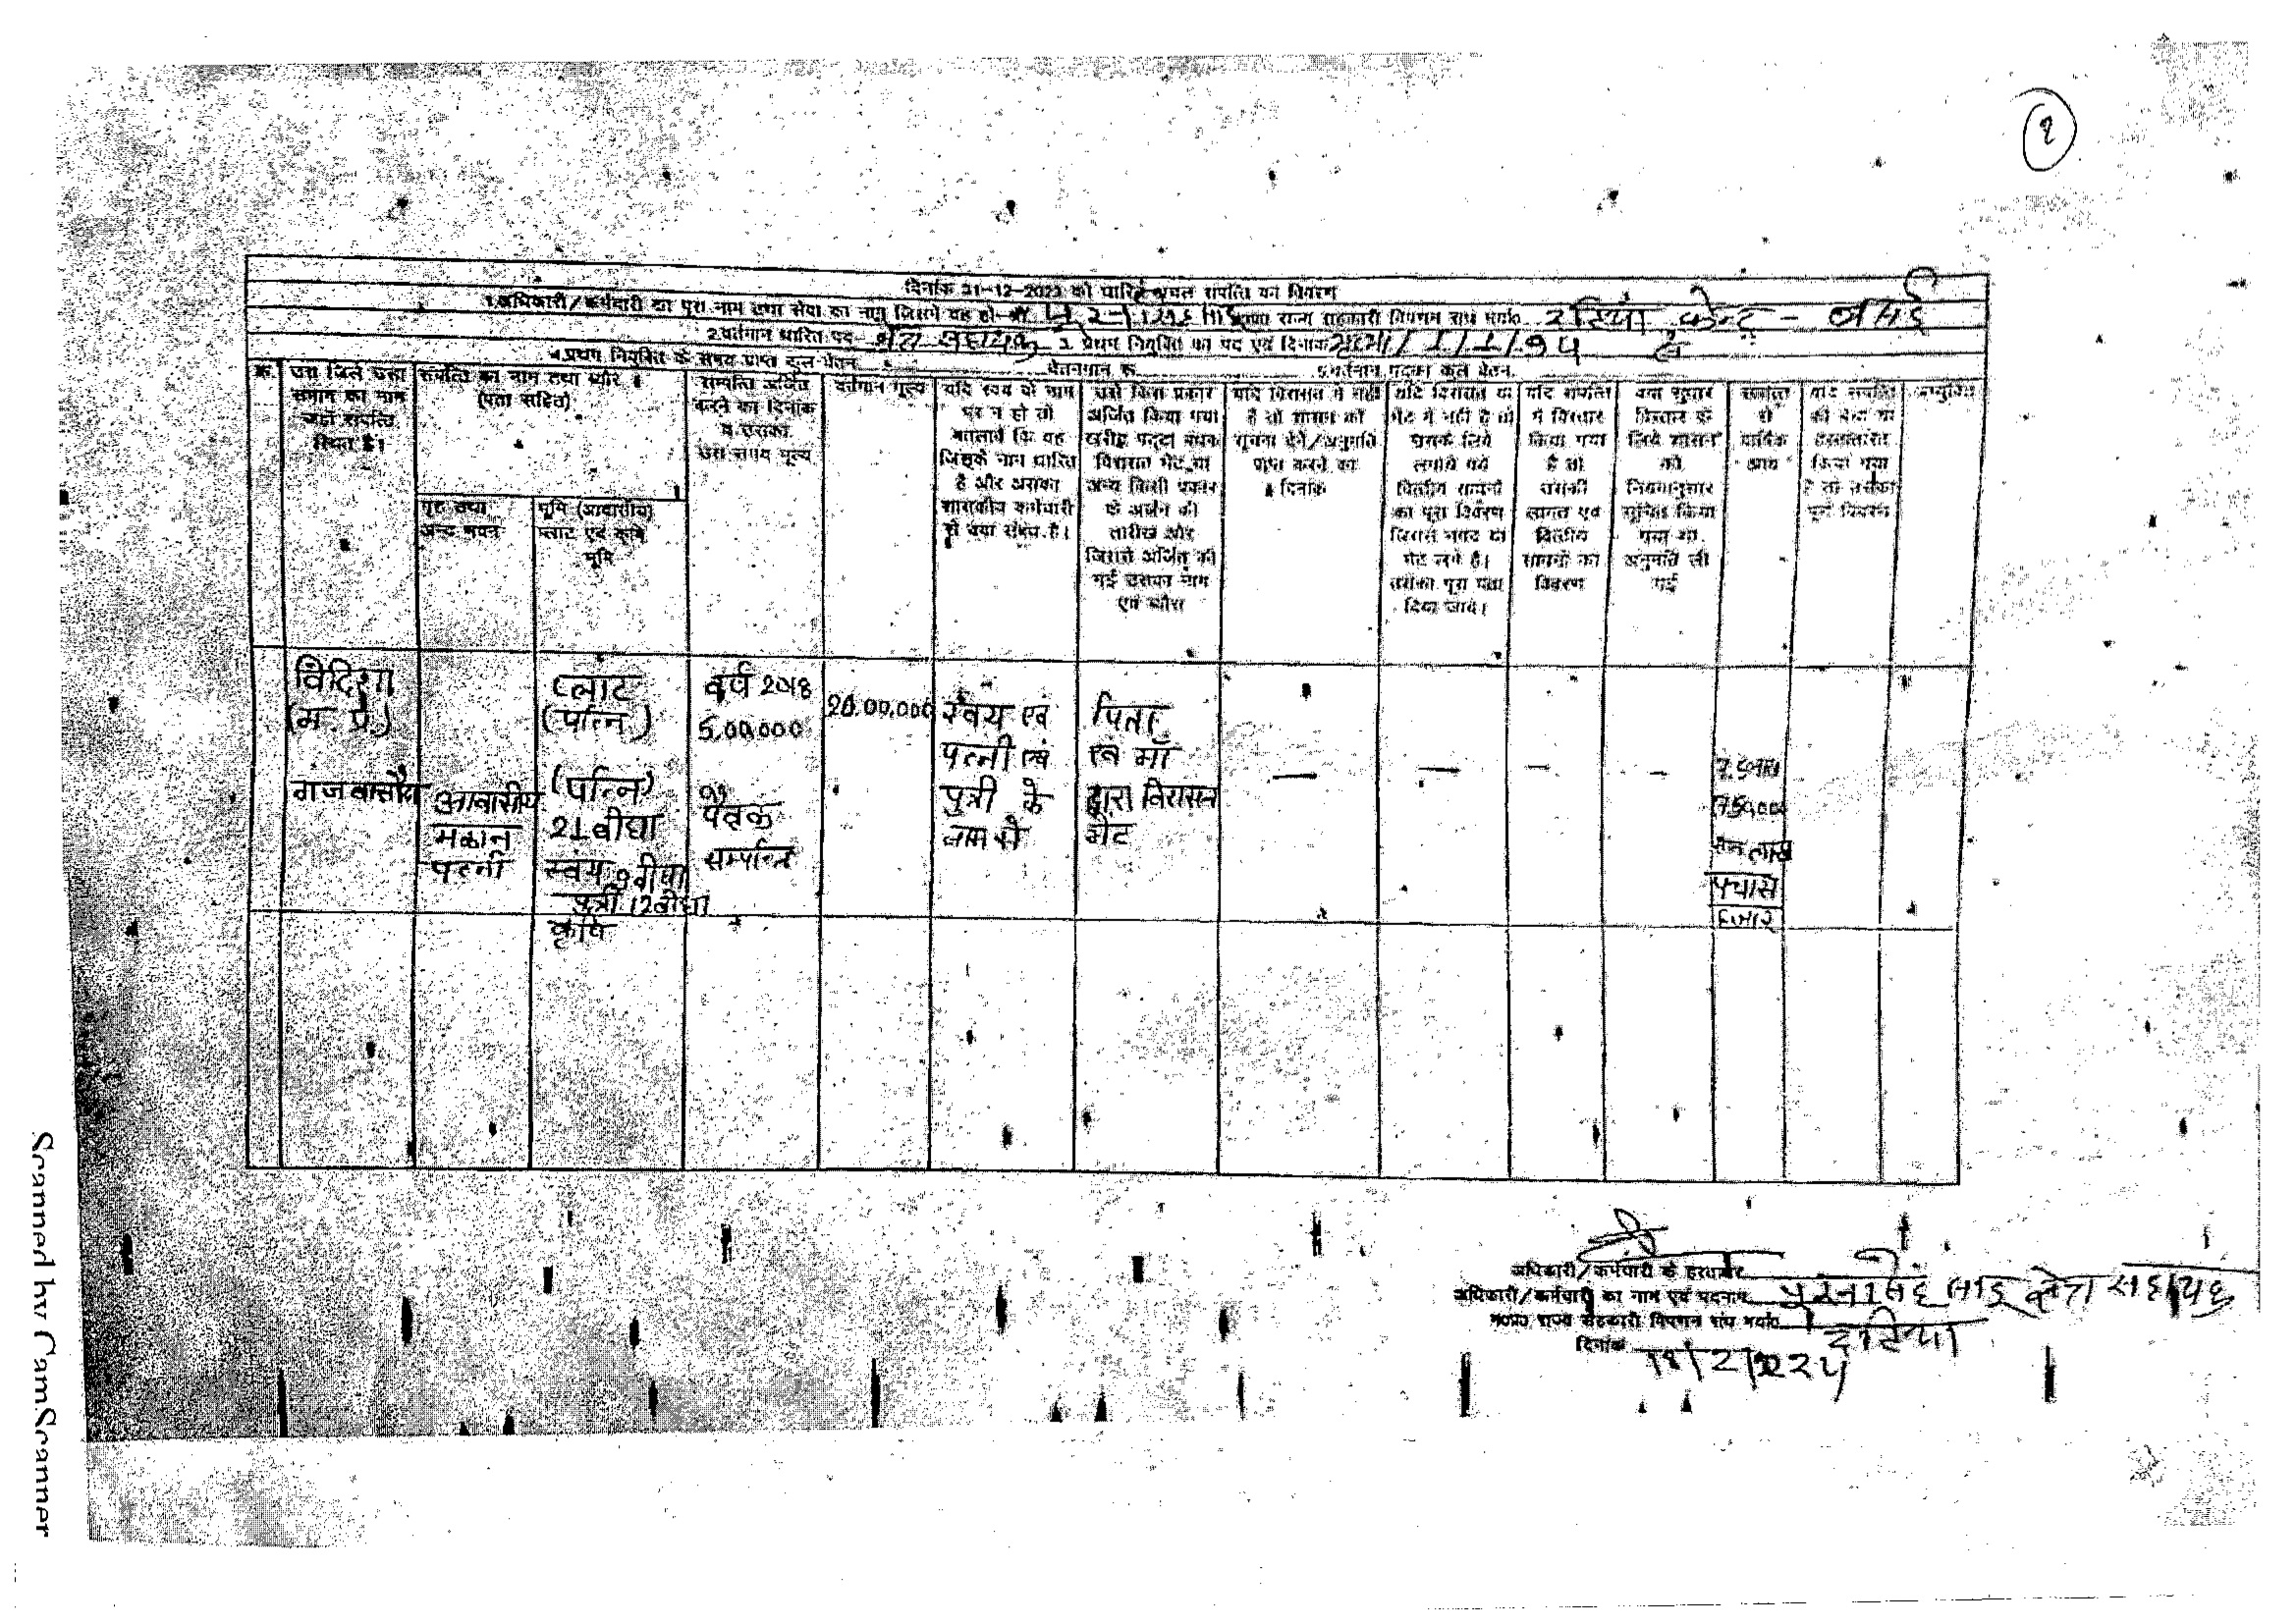 १
दिनांक 31-12-2023 को धारित अचल संपत्ति का विवरण
1.अधिकारी/कर्मचारी का पूरा नाम तथा सेवा का नाम जिसमें वह हो श्री राज्य सहकारी विपणन संघ मर्या० दतिया केन्द्र - बसई
2.वर्तमान धारित पद क्षेत्र सहायक 3 प्रथम नियुक्ति का पद एवं दिनांक 1/1/94
4.प्रथम नियुक्ति के समय प्राप्त कुल वेतन वेतनमान रू. 5.वर्तमान पदका कुल वेतन
क्र.
उस जिले उस
का नाम
जहाँ संपत्ति
स्थित है।
संपत्ति का नाम तथा ब्यौरे
(पता सहित)
गृह तथा
अन्य भवन
भूमि (आवासीय)
प्लाट एवं कृषि
भूमि
सम्पत्ति अर्जित
करने का दिनांक
व उसका
उस समय मूल्य
वर्तमान मूल्य
यदि स्वयं के नाम
पर न हो तो
बतलायें कि वह
जिसके नाम धारित
है और उसका
शासकीय कर्मचारी
से क्या संबंध है।
उसे किस प्रकार
अर्जित किया गया
खरीद पट्टा बंधक
विरासत भेंट या
अन्य किसी प्रकार
के अर्जन की
तारीख और
जिससे अर्जित की
गई उसका नाम
एवं ब्यौरा
यदि विरासत में नहीं
है तो शासन को
सूचना देने/अनुमति
प्राप्त करने का
दिनांक
यदि विरासत या
भेंट में नहीं है तो
उसके लिये
लगाये गये
वित्तीय साधनों
का पूरा विवरण
जिससे नगद या
भेंट लगे है।
उसका पूरा पता
दिया जावे।
यदि संपत्ति
में विस्तार
किया गया
है तो
उसकी
लागत एवं
वित्तीय
साधनों का
विवरण
क्या सुधार
विस्तार के
लिये शासन
को
नियमानुसार
सूचित किया
गया या
अनुमति ली
गई
संपत्ति
से
वार्षिक
आय
यदि संपत्ति
को बेचा या
हस्तांतरित
किया गया
है तो उसका
पूर्ण विवरण
अभ्युक्ति
विदिशा
(म. प्र.)
प्लाट
(पत्नि)
वर्ष 2018
5,00,000
20,00,000
स्वयं एवं
पत्नी एवं
पुत्री के
नाम से
पिता
एवं माँ
द्वारा विरासत
भेंट
गंजबासौदा
आवासीय
मकान
पत्नी
(पत्नि)
21 बीघा
स्वंय 9 बीघा
पुत्री 12 बीघा
कृषि
पैतृक
सम्पत्ति
लाख
पचास
हजार
अधिकारी/कर्मचारी के हस्ताक्षर
अधिकारी/कर्मचारी का नाम एवं पदनाम क्षेत्र सहायक
म०प्र० राज्य सहकारी विपणन संघ मर्या० दतिया
दिनांक
Scanned by CamScanner